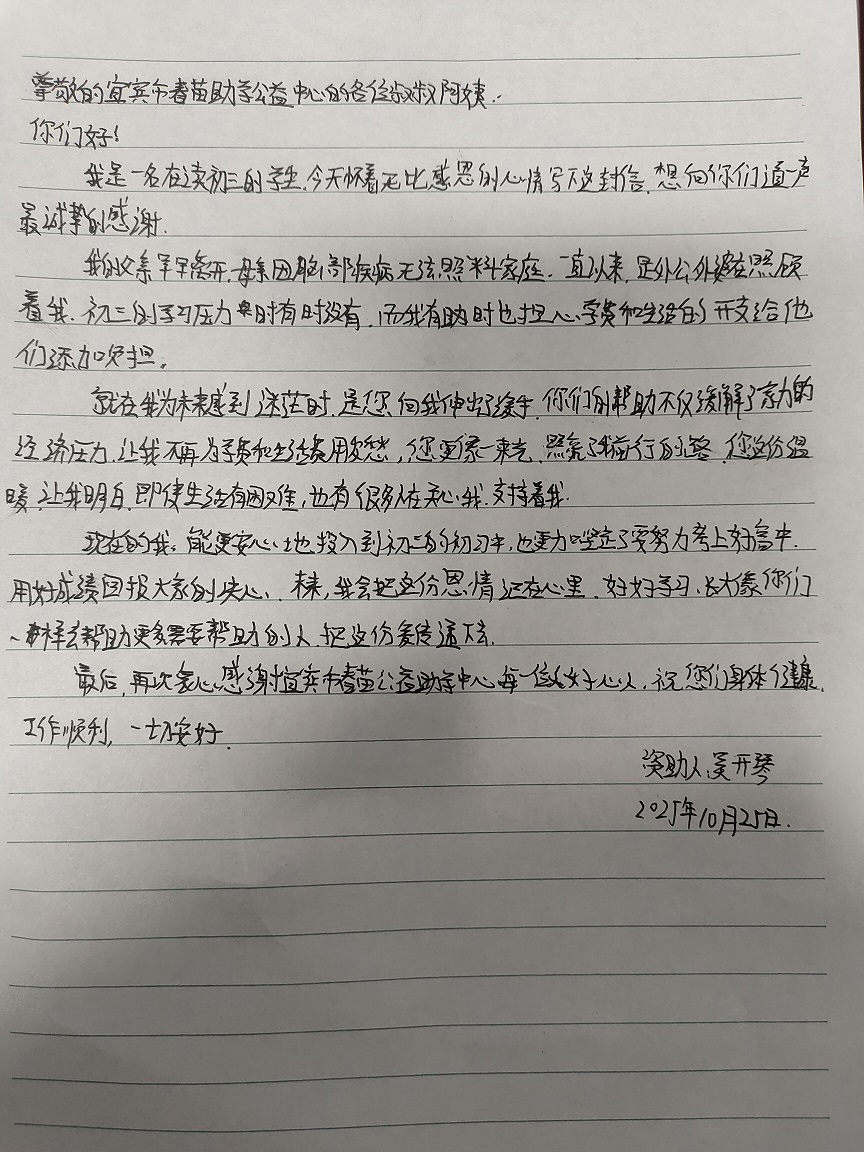 尊敬的宜宾市春苗助学公益中心的各位叔叔阿姨.
你们好!
我是一名在读初三的学生.今天怀着无比感恩的心情写下这封信.想向你们道一声
最诚挚的感谢.
我的父亲早早离开.母亲因脑部疾病无法照料家庭.一直以来,是外公外婆在照顾
着我.初三的学习压力时有时没有.而我有助时也担心学费和生活的开支给他
们添加负担.
就在我为未来感到迷茫时.是您向我伸出了援手.你们的帮助不仅缓解了家力的
经济压力.让我不再为学费和生活费用发愁,您更像一束光.照亮了我前行的路.您这份温
暖.让我明白.即使生活有困难,也有很多人在关心我.支持着我.
现在的我.能更安心地投入到初三的初习中,也更力口坚定了要努力考上好高中.
用好成绩回报大家的关心.未来,我会把这份恩情记在心里.好好学习.长大像你们
一样去帮助更多需要帮助的人.把这份爱传递下去.
最后,再次衷心感谢宜宾市春苗公益助学中心每一位好心人.祝您们身体健康.
工作顺利,一切安好.
资助人 开琴
2025年10月25日.